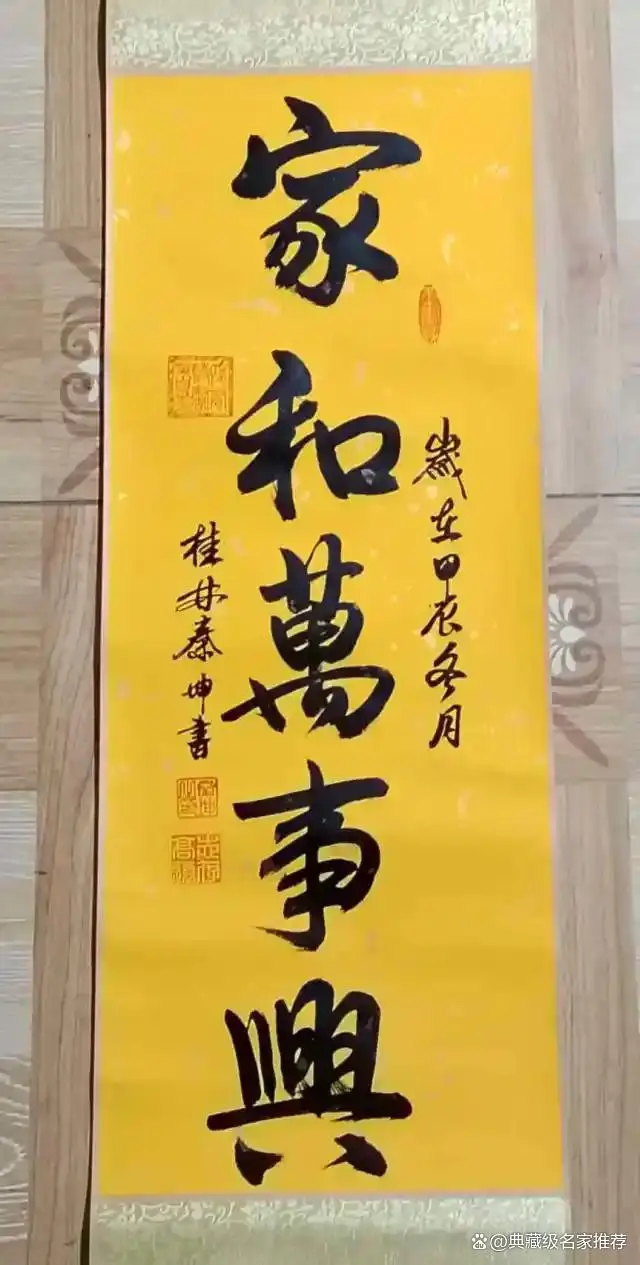 家和萬事興
歲在甲辰冬月
桂林秦坤書
@典藏级名家推荐